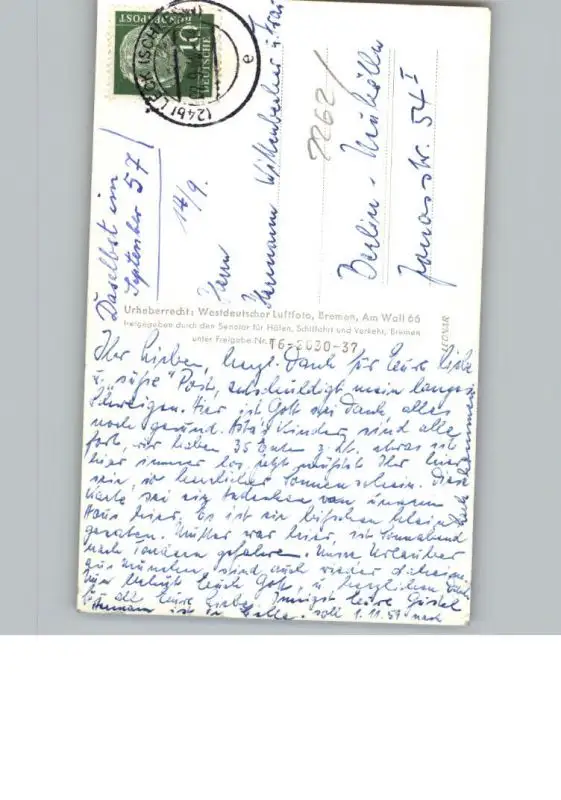 DEUTSCHE
BUNDESPOST
10
(24b) LECK (SCHLESW)
e
Daselbst im
September 57
14/9.
Herrn
Hermann u. Frau
7262
Berlin-Neukölln
Jonasstr. 54 I
Urheberrecht: Westdeutscher Luftfoto, Bremen, Am Wall 66
Freigegeben durch den Senator für Häfen, Schiffahrt und Verkehr, Bremen
unter Freigabe Nr. T6-2030-37
Ihr Lieben, herzl. Dank für Eure liebe
u. "süße" Post, entschuldigt mein langes
Schweigen. Hier ist Gott sei Dank, alles
noch gesund. Kinder sind alle
fort, wir haben 35 Enten z. Zt. etwas ist
hier immer los, jetzt müßtet Ihr hier
sein, so herrlicher Sonnenschein. Diese
Karte sei ein Andenken von unserem
Haus hier. Es ist ein bißchen klein
geraten. Mutter war hier, ist Sonnabend
nach gefahren. Unsere Urlauber
aus München, sind auch wieder daheim.
Nun behüt Euch Gott, u. herzlichen Dank
für all Eure Liebe. Innigst Eure Gistel
Hermann ist in Halle. soll 1.11.57 nach